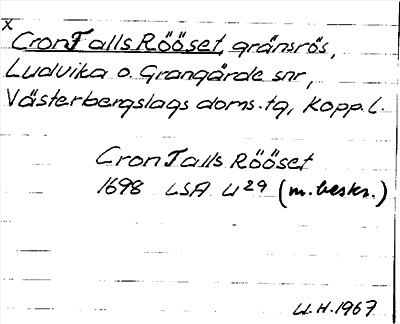 x
CronTallsRööset, gränsrös,
Ludvika o. Grangärde snr,
Västerbergslags doms.tg, Kopp.l.
CronTalls Rööset
1698 LSA U29 (m.beskr.)
U.H.1967